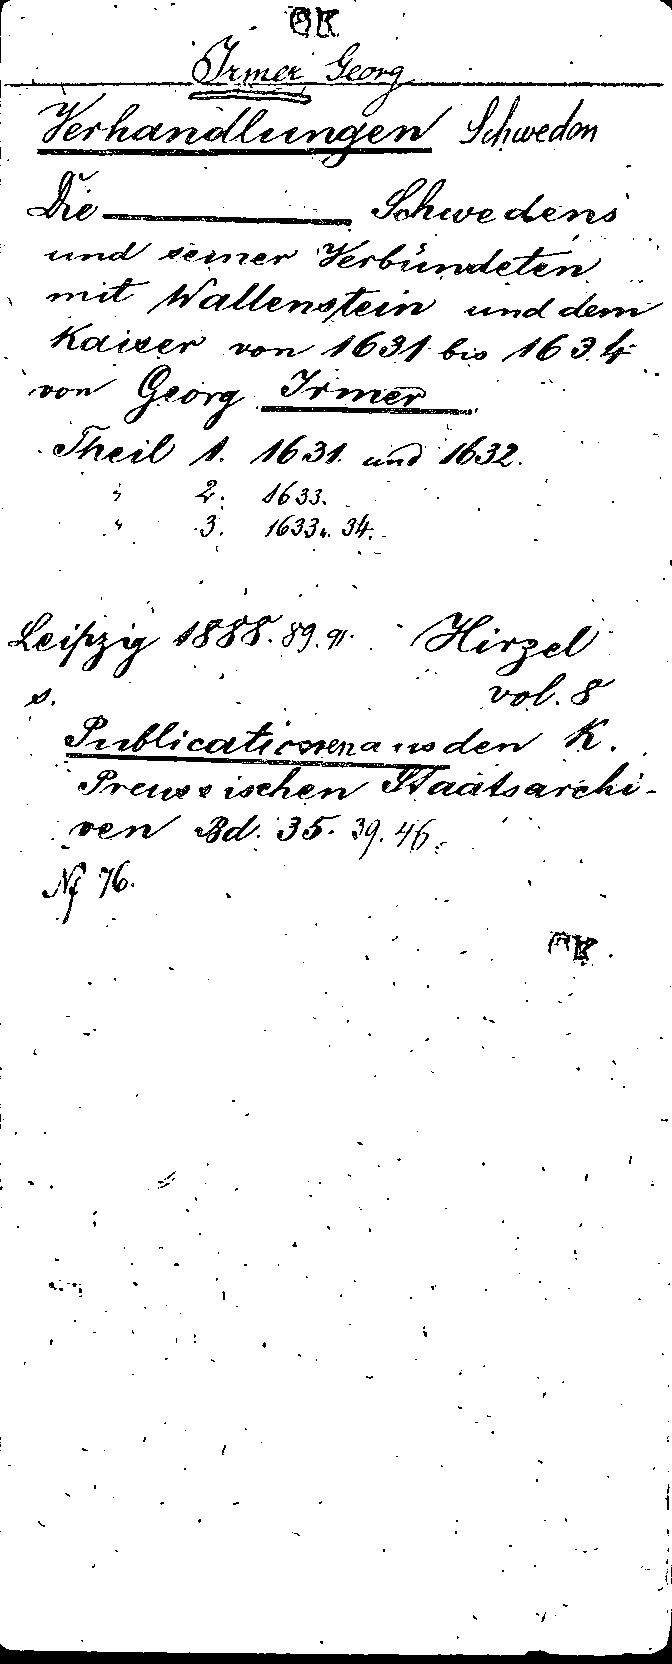 Irmer, Georg
Verhandlungen Schweden
Die ——— Schwedens
und seiner Verbündeten
mit Wallenstein und dem
Kaiser von 1631 bis 1634
von Georg Irmer
Theil 1. 1631. und 1632.
" 2. 1633.
" 3. 1633 u. 34.
Leipzig 1888. 89. 91. Hirzel
s. vol. 8
Publicationen aus den K.
Preussischen Staatsarchi-
ven Bd. 35. 39. 46.
Nf 76.